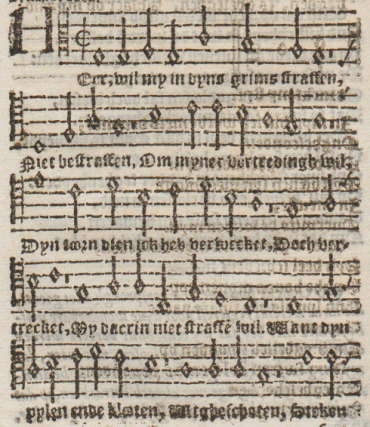 H
Eer, wil my in dyns grims straffen,
Niet bestraffen, Om myner vertredingh wil:
Dyn torn dien ick heb verwecket, Doch ver-
trecket, My daerin niet straffē wil. Want dyn
pylen ende kloten, Wtgheschoten, Steken